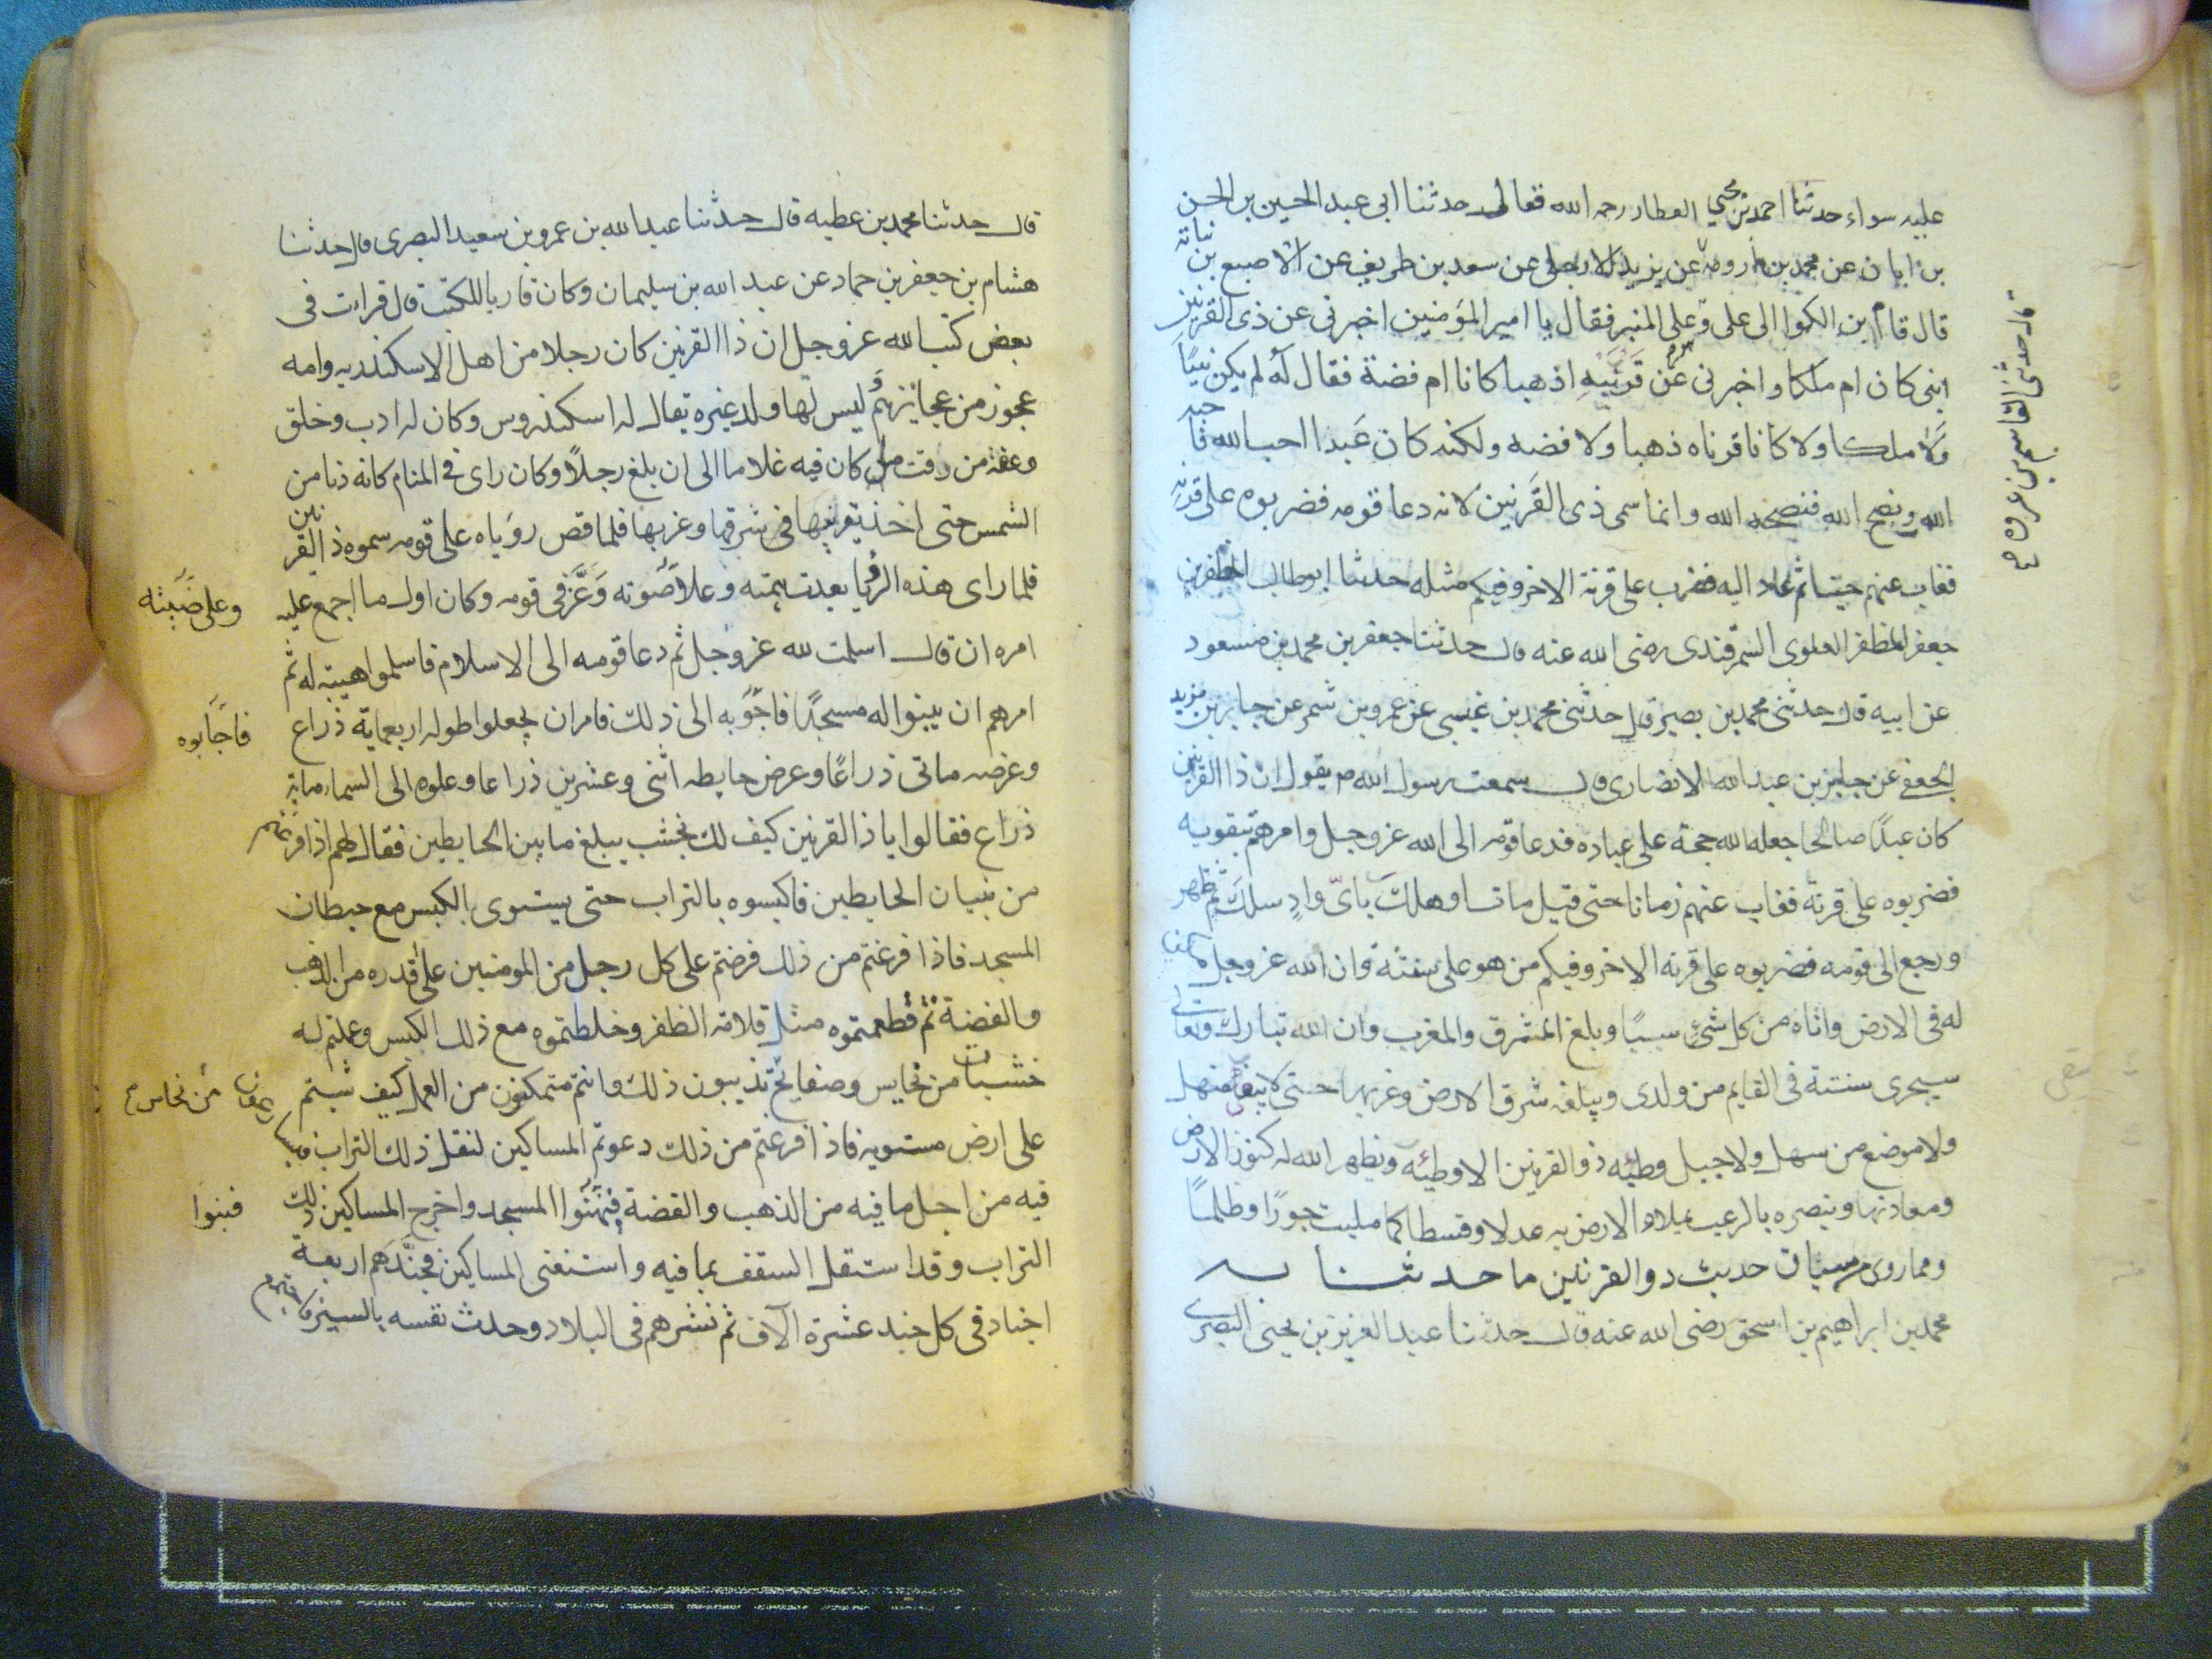 عليه سواء حدثنا احمد بن محمد بن يحيى العطار رحمه الله تعالى حدثنا ابى عبد الحسين بن الحسن
بن ابان عن محمد بن اورمه عن يزيد الارجلى عن سعد بن طريف عن الاصبغ بن نباته
قال قام ابن الكوا الى على و على المنبر فقال يا امير المؤمنين اخبرنى عن ذى القرنين
ابنى كان ام ملكا واخبرنى عن قرنيه اذهبا كانا ام فضة فقال له لم يكن نبيّا
ولا ملكا ولا كانا قرناه ذهبا ولا فضه ولكنه كان عبدا احب الله فاحبه
الله ونصح الله فنصحه الله وانما سمى ذى القرنين لانه دعا قومه فضربوه على قرنه
فغاب عنهم حينا ثم عاد اليه فضرب على قرنة الاخر وفيكم مثله حدثنا ابو طالب المظفر بن
جعفر المظفر العلوى السمرقندى رضى الله عنه قال حدثنا جعفر بن محمد بن مسعود
عن ابيه قال حدثنى محمد بن بصير قال حدثنى محمد بن عيسى عن عمرو بن شمر عن جابر بن يزيد
الجعفى عن جابر بن عبد الله الانصارى قال سمعت رسول الله ص يقول ان ذا القرنين
كان عبدًا صالحا جعله الله حجة على عباده فدعا قومه الى الله عز وجل وامرهم بتقويه
فضربوه على قرنه فغاب عنهم زمانا حتى قيل مات او هلك باىّ وادٍ سلك ثم ظهر
ورجع الى قومه فضربوه على قرنه الاخر وفيكم من هو على سنته وان الله عز وجل مكن
له فى الارض واتاه من كل شئ سببًا وبلغ المشرق والمغرب وان الله تبارك وتعالى
سيجرى سنتة فى القايم من ولدى ويبلغه شرق الارض وغربها حتى لا يبقى منهل
ولا موضع من سهل ولا جبل وطئه ذو القرنين الا وطئه ويظهر الله له كنوز الارض
ومعادنها وينصره بالرعب يملاء الارض به عدلا وقسطا كما مليت جورًا وظلمًا
ومما روى من سياق حديث ذو القرنين ما حدثنا به
محمد بن ابراهيم بن اسحق رضى الله عنه قال حدثنا عبد العزيز بن يحيى البصرى
قال حدثنى القاسم بن عروه
قال حدثنا محمد بن عطيه قال حدثنا عبد الله بن عمرو بن سعيد البصرى قال حدثنا
هشام بن جعفر بن حماد عن عبد الله بن سليمان وكان قاريا للكتب قال قراءت فى
بعض كتب الله عز وجل ان ذا القرنين كان رجلا من اهل الاسكندريه وامه
عجوز من عجايزهم وليس لها ولد غيره يقال له اسكندروس وكان له ادب وخلق
وعفه من وقت ما كان فيه غلاما الى ان بلغ رجلًا وكان راى فى المنام كانه دنا من
الشمس حتى اخذ بقرنيها فى شرقها وغربها فلما قص روياه على قومه سموه ذا القرنين
فلما راى هذه الرؤيا بعدت همته وعلا صوته وعَزَّ فى قومه وكان اول ما اجمع عليه
وعلى صَيّته
امره ان قال اسلمت لله عز وجل ثم دعا قومه الى الاسلام فاسلموا هيبته له ثم
امرهم ان يبنوا له مسجدًا فاجوبه الى ذلك فامر ان يجعلوا طوله اربعمايه ذراع
فاجابوه
وعرضه ماتى ذراعًا وعرض حايطه اثنى وعشرين ذراعا وعلوه الى السماء مايه
ذراع فقالوا يا ذا القرنين كيف لك بخشب يبلغ ما بين الحايطين فقال لهم اذا فرغتم
من بنيان الحايطين فاكبسوه بالتراب حتى يستوى بالكبس مع حيطان
المسجد فاذا فرغتم من ذلك فرضتم على كل رجل من المومنين على قدره من الذهب
والفضة ثم قطعتموه مثل قلامة الظفر وخلطتموه مع ذلك الكبس وعملتم له
خشبات من نحايس وصفايح تذيبون ذلك وانتم متمكنون من العمل كيف شيتم
من نحاس
على ارض مستويه فاذا فرغتم من ذلك دعوتم المساكين لنقل ذلك التراب
فيه من اجل ما فيه من الذهب والفضة فبنوا المسجد واخرج المساكين ذلك
فبنوا
التراب وقد استقل السقف بما فيه واستغنى المساكين فجَنَّدَهم اربعة
اجناد فى كل جند عشرة الآف ثم نشرهم فى البلاد وحدث نفسه بالسير